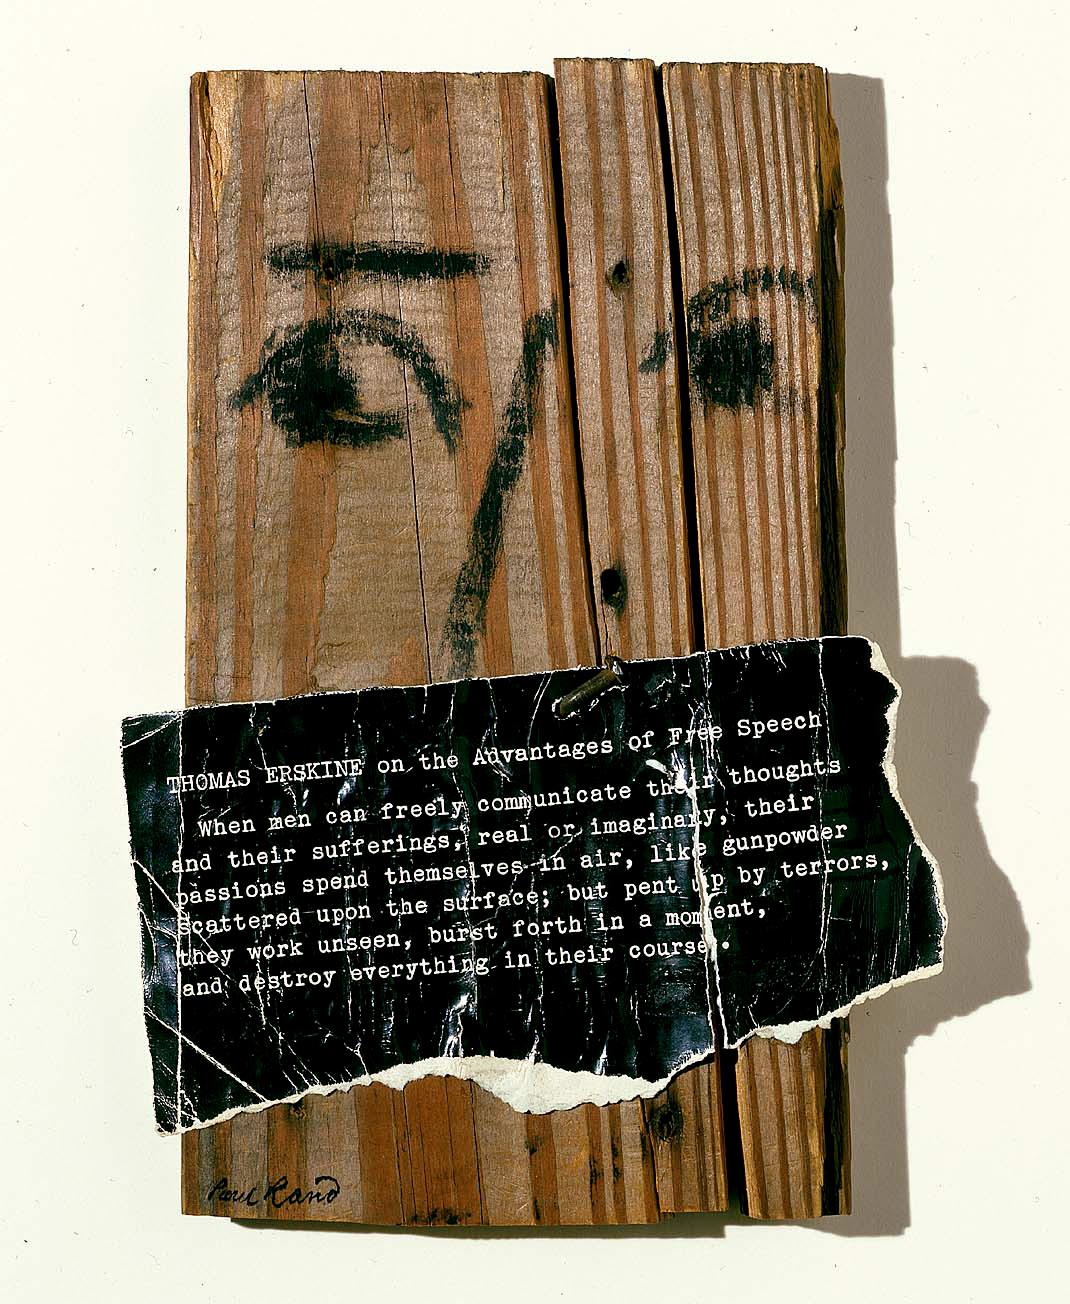 THOMAS ERSKINE on the Advantages of Free Speech
When men can freely communicate their thoughts
and their sufferings, real or imaginary, their
passions spend themselves in air, like gunpowder
scattered upon the surface; but pent up by terrors,
they work unseen, burst forth in a moment,
and destroy everything in their course.
Paul Rand